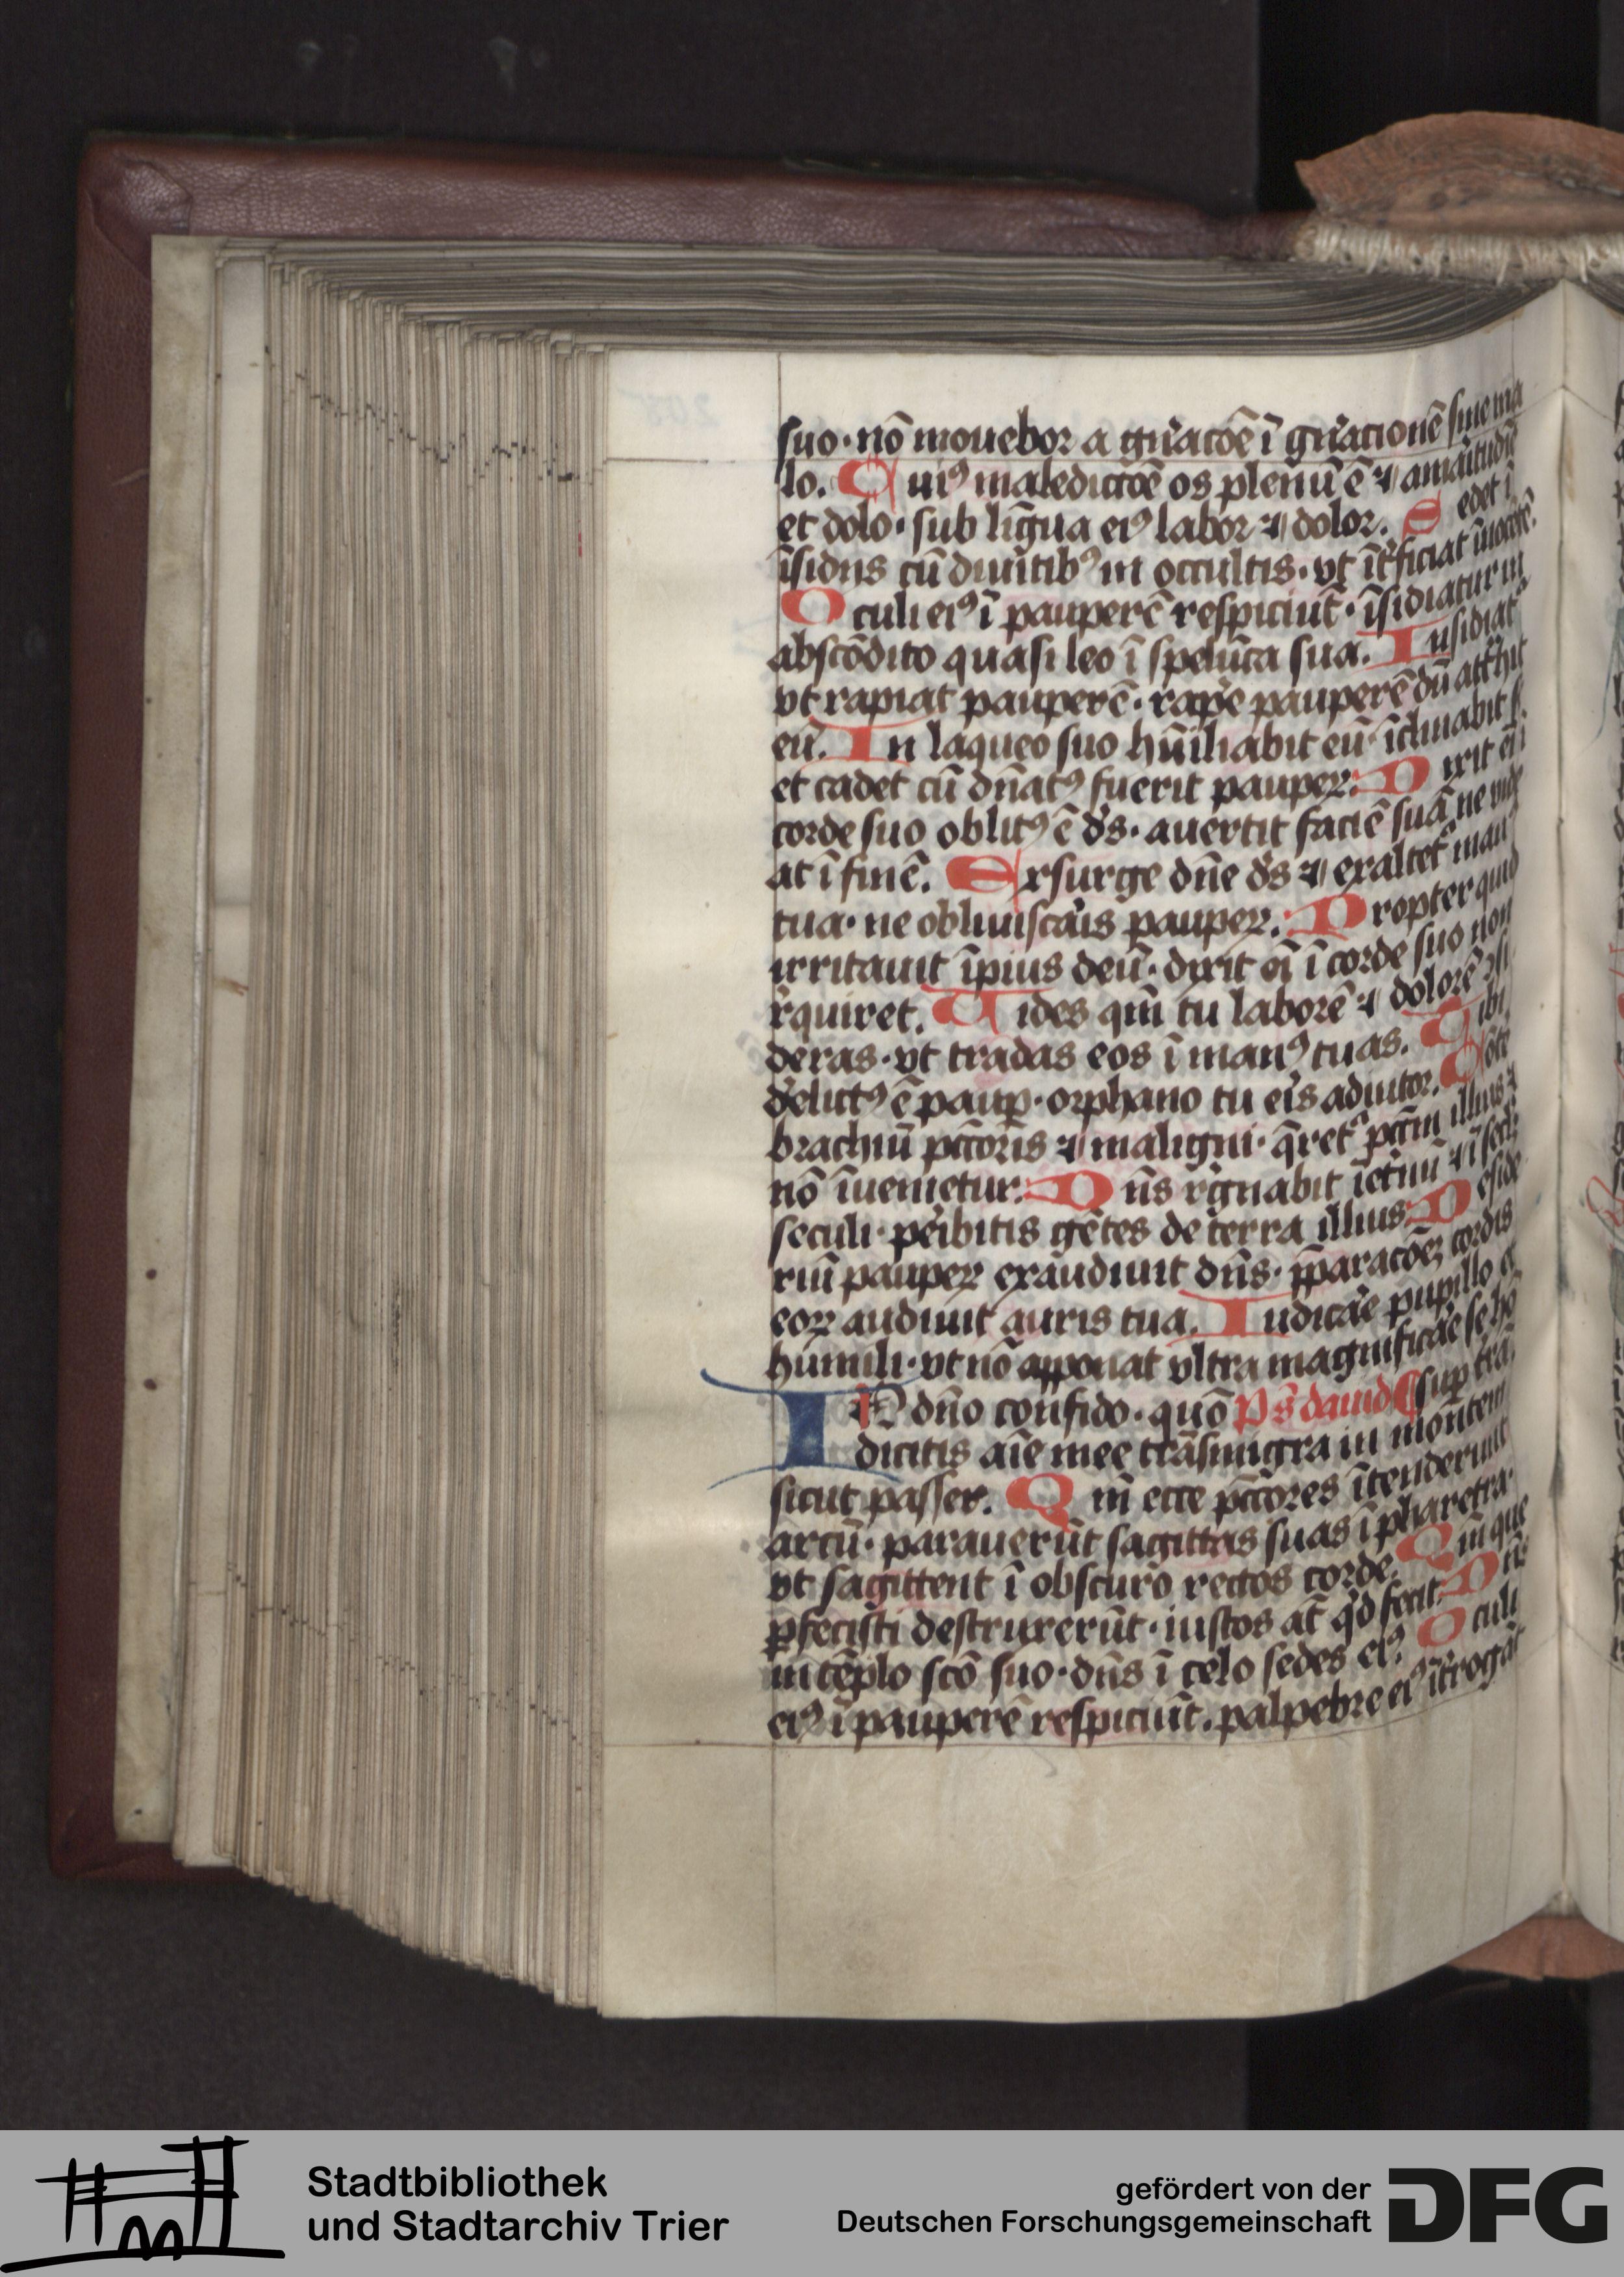 suo · nō mouebor a gn̄acōe ī gn̄acionē sine ma
lo. Cuiꝰ maledictōe os plenū ē ⁊ amaritudīe
et dolo · sub ligua eiꝰ labor ⁊ dolor. Sedet ī
īsidiis cū diuitibꝰ in occultis · vt īt̄ficiat īnocētē.
Oculi eiꝰ ī pauperē respiciūt · īsidiatur in
abscōdito quasi leo ī spelūca sua. Insidiat᷑
vt rapiat pauperē · rape pauperē dū att͛hit
eū. In laqueo suo hūiliabit eū · īclinabit s.
et cadet cū dn̄atꝰ fuerit pauperꝝ. Dixit eī ī
corde suo oblitꝰ ē ds̄ · auertit faciē suā ne vide
at ī finē. Exsurge dn̄e ds̄ ⁊ exaltet᷑ manꝰ
tua · ne obliuiscais pauperꝝ. Propter quid
irritauit īpius deū · dixit eī ī corde suo non
r̄quiret. Vides qm̄ tu laborē ⁊ dolorē ꝯsi
deras · vt tradas eos ī manꝰ tuas. Tibi
d̄elictꝰ ē paup̲ · orphano tu eīs adiutor. Cōte
brachiū pc̄coris ⁊ maligni · q̄ret᷑ pcc̄m illius ⁊
nō īuenietur. Dn̄s r̄gnabit īet̄nū ⁊ ī secl̄m
seculi · pe̅ibitis gētes de terra illius. Deside
riū pauperꝝ exaudiuit dn̄s · p̄paracōeꝫ cordis
eoꝝ audiuit auris tua. Iudicāe pupillo et
humili · vt nō apponat vltra magnificāe se hō
IN dn̄o confido · quō Ps̄ dauid ¶ sup̲ trā.
dicitis aīe mee trāsmigra in montem
sicut passer. Qm̄ ecce pc̄cores ītenderunt
arcū · parauerūt sagittas suas ī pharetra ·
vt sagittent ī obscuro rectos corde. Qm̄ que
ꝑfecisti destruxerūt · iustos at̄ qͥd fecit. Dn̄s
in tēplo scō suo · dn̄s ī celo sedes eiꝰ. Oculi
eiꝰ ī pauperē respiciūt. palpebre eiꝰ īt̄rogāt
Stadtbibliothek
und Stadtarchiv Trier
gefördert von der
Deutschen Forschungsgemeinschaft
DFG